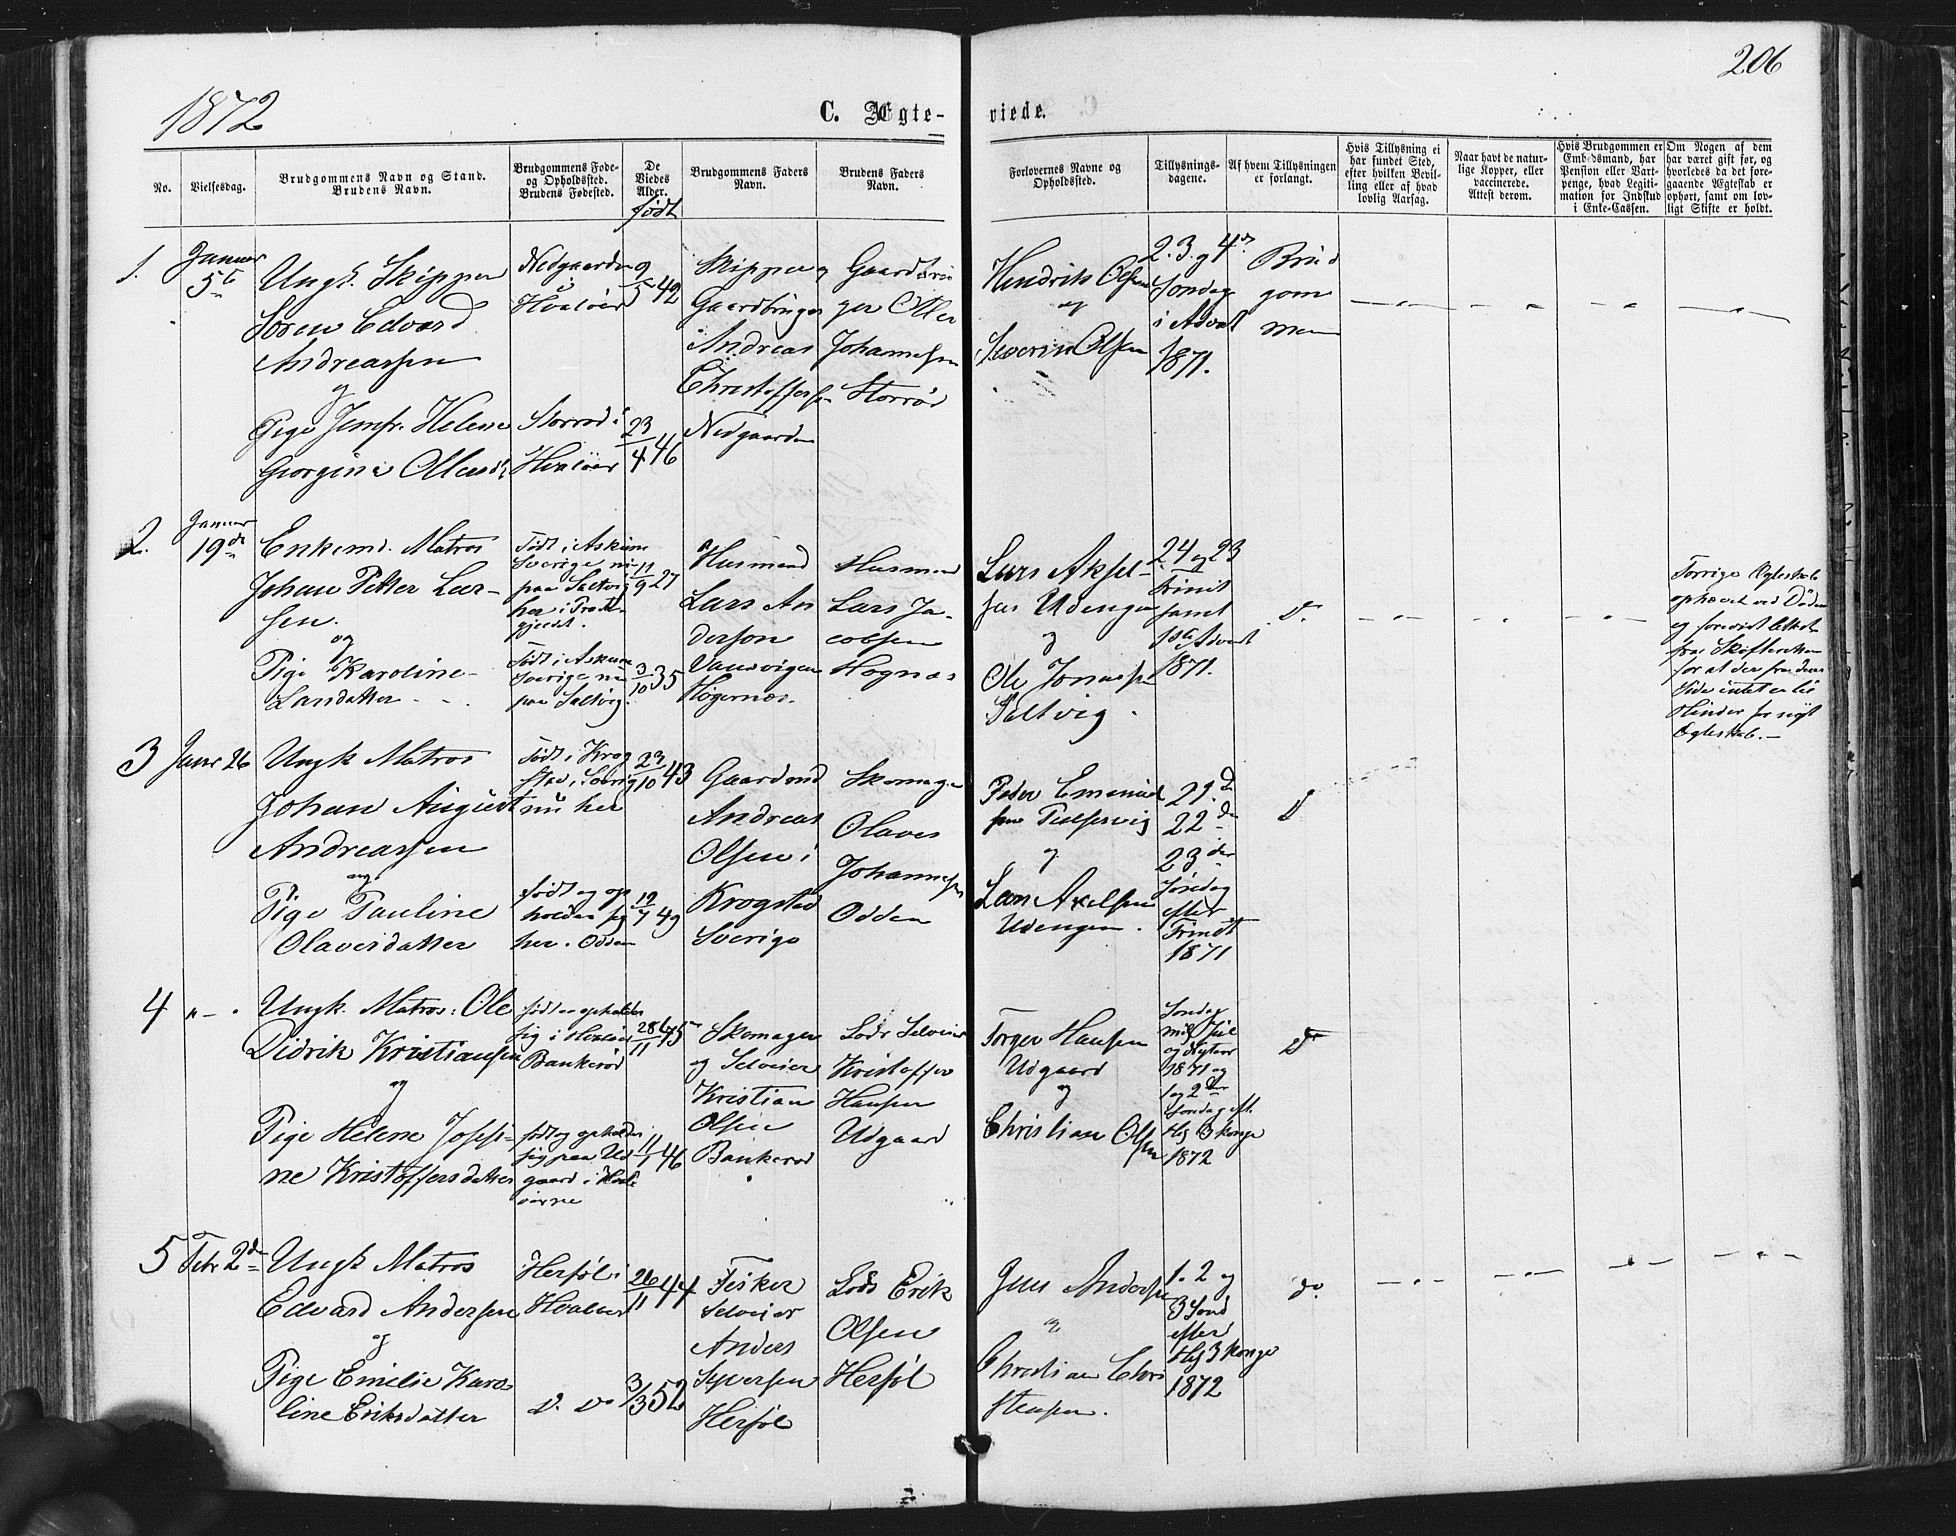 206
1872
C. Ægte-
viede.
No.
Vielsesdag.
Brudgommens Navn og Stand.
Brudens Navn.
Brudgommens Føde-
og Opholdssted.
Brudens Fødested.
De
Viedes
Alder.
født
Brudgommens Faders
Navn.
Brudens Faders
Navn.
Forlovernes Navne og
Opholdssted.
Tillysnings-
dagene.
Af hvem Tillysningen
er forlangt.
Hvis Tillysning ei
har fundet Sted,
efter hvilken Bevil-
ling eller af hvad
lovlig Aarsag.
Naar havt de natur-
lige Kopper, eller
vaccinerede.
Attest derom.
Hvis Brudgommen er
Embedsmand, har
Pension eller Vart-
penge, hvad Legiti-
mation for Indskud
i Enke-Cassen.
Om Nogen af dem
har været gift før, og
hvorledes da det fore-
gaaende Ægteskab er
ophørt, samt om lov-
ligt Skifte er holdt.
1.
Januar
5te
Ungk. Skipper
Søren Edvard
Andreassen
og
Pige Jomfr. Helene
Georgine Olless
Nedgaarden
i
Hvaløer
Storrød i
Hvaløer
9/5 42
23/4 46
Skipper og
Gaardbruger
Andreas
Christoffersen
Nedgaarden
Gaardbru
ger Oller
Johannesen
Storrød
Hendrik Olsen
og
Severin Olsen
2. 3. og 4de
Søndag
i Advent
1871.
Brud
gom
men
2.
Januar
19de
Enkemd. Matros
Johan Petter Lar-
sen.
og
Pige Karoline
Larsdatter
Født i Askum
Sverige nu
paa Saltvig
her i Præste
gjeldet.
Født i Askum
Sverige nu
paa Saltvig.
11/9 27
3/10 35
Husmand
Lars An
derson
Høgernæs.
Husmand
Lars Ja-
cobsen
Hognæs
Lars Aksel-
sen Udengen
og
Ole Jonassen
Saltvig.
24 og 23
trinit
samt
1ste Advent
1871.
Do
Forrige Ægteskab
ophævet ved Døden
og forevist Attest
fra Skifteretten
for at der fra denne
Side intet er til
Hinder for nyt
Ægteskab.
3
Janr 26
Ungk Matros
Johan August
Andreassen
og
Pige Pauline
Olavesdatter
Født i Krog
stad i Sverig
nu her
født og op
holder sig
her. Odden
23/10 43
19/7 49
Gaardmd
Andreas
Olsen i
Krogstad
Sverige
Skomager
Olaves
Johannesen
Odden
Peder Emanuel
sen
og
Lars Axelsen
Udengen.
21de
22de
23de
Søndag
efter
Trinit
1871
Do
4
Ungk. Matros: Ole
Didrik Kristiansen
og
Pige Helene Josefi-
ne Kristoffersdatter
født og opholder
sig i Hvaløer
Bankerød
født og opholder
sig paa Ud
gaard i Hval
øerne
28/11 45
11/1 46
Skomager
og Selveier
Kristian
Olsen
Bankerød
Lods Selveier
Kristoffer
Hansen
Udgaard
Torger Hansen
Udgaard
og
Christian Olsen
Søndag
mell Jul
og Nytaar
1871 og
1 og 2den
Søndag eft.
Hel 3 Konge
1872
Do
5
Febr 2de
Ungk Matros
Edvard Andersen
og
Pige Emelie Karo
line Eriksdatter
Herføl i
Hvaløer
do do
26/11 44
3/3 52
Fisker
Selveier
Anders
Syversen
Herføl
Lods Erik
Olsen
Herføl
Jens Andersen
og
Christian Chri
stensen.
1. 2 og
3 Sønd
efter
Hel 3 Konge
1872
do